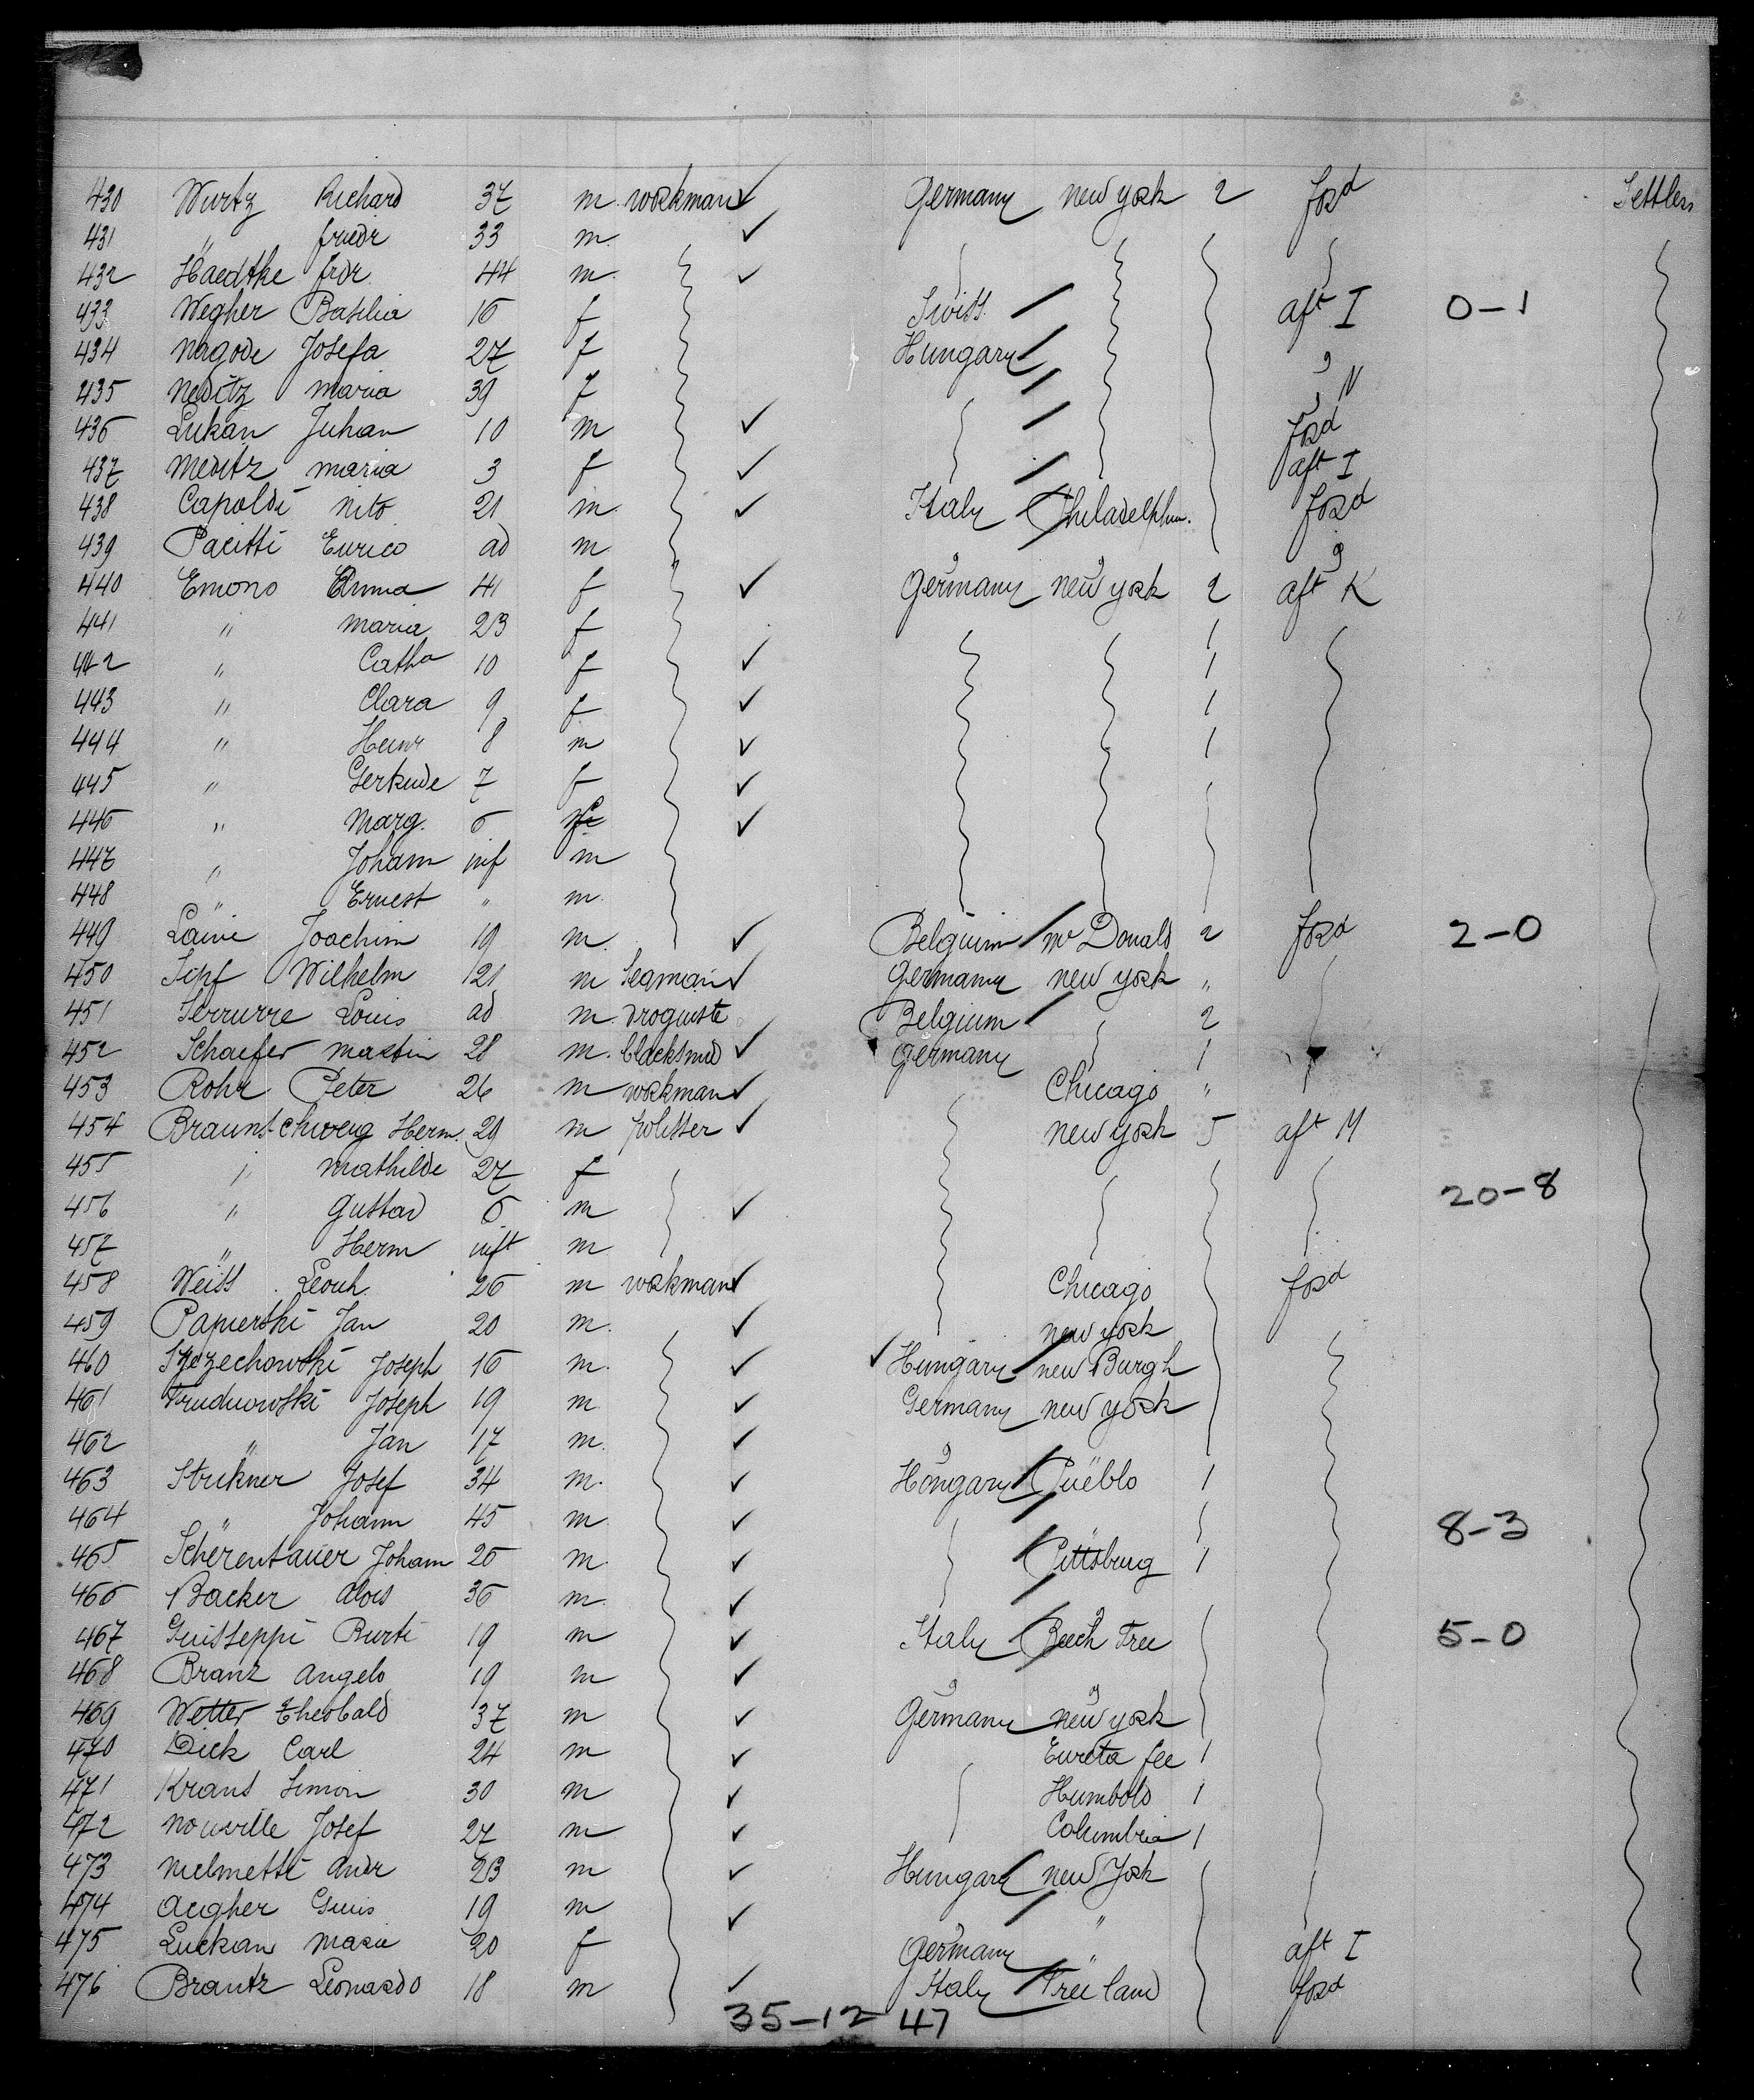 430 Wurtz Richard 37 m. workman Germany new york 2 ford Settlers
431 " friedr 33 m.
432 Haedtke frdr. 44 m.
433 Wegher Basilia 16 f Swiss. aft I 0-1
434 Nagode Josefa 27 f Hungary
435 Neditz maria 39 f N
436 Lukan Juhan 10 m ford
437 Meditz maria 3 f aft I
438 Capoldi nito 21 m Italy Philadelphia. ford
439 Pacitti Eurico ad m
440 Emons Emma 41 f Germany new york 2 aft K
441 " maria 23 f 1
442 " Catha 10 f 1
443 " Clara 9 f 1
444 " Heinr 8 m 1
445 " Gertrude 7 f
446 " Marg. 6 f
447 " Johann inf m
448 " Ernest " m.
449 Laine Joachim 19 m. Belgium Mc Donald 2 ford 2-0
450 Sepf Wilhelm 21 m Seaman Germany new york "
451 Serrurre Louis ad m. droguiste Belgium 2
452 Schaefer martin 28 m. blacksmid Germany 1
453 Rohr Peter 26 m workman Chicago "
454 Braunschweig Herm. 29 m polisser new york 5 aft M
455 " mathilde 27 f
456 " Gustav 6 m 20-8
457 " Herm inft m
458 Weiss Leonh. 26 m workman Chicago ford
459 Papierski Jan 20 m. new york
460 Szczechowski Joseph 16 m. Hungary new Burgh
461 Trudnowski Joseph 19 m Germany new york
462 " Jan 17 m.
463 Strikner Josef 34 m. Hungary Pueblo 1
464 " Johann 45 m 8-3
465 Scherentauer Johann 26 m. Pittsburg 1
466 Backer Alois 36 m.
467 Guisseppi Burti 19 m Italy Beech Tree 5-0
468 Branz Angelo 19 m
469 Wetter Theobald 37 m Germany new york
470 Dick Carl 24 m 1
471 Kraus Simon 30 m Humbold 1
472 Nouville Josef 27 m Columbia 1
473 Melmetti Andr 23 m Hungary new York
474 Aegher 19 m "
475 Luckan Maria 20 f Germany " aft I
476 Brantz Leonardo 18 m Italy Freeland ford
35-12 47